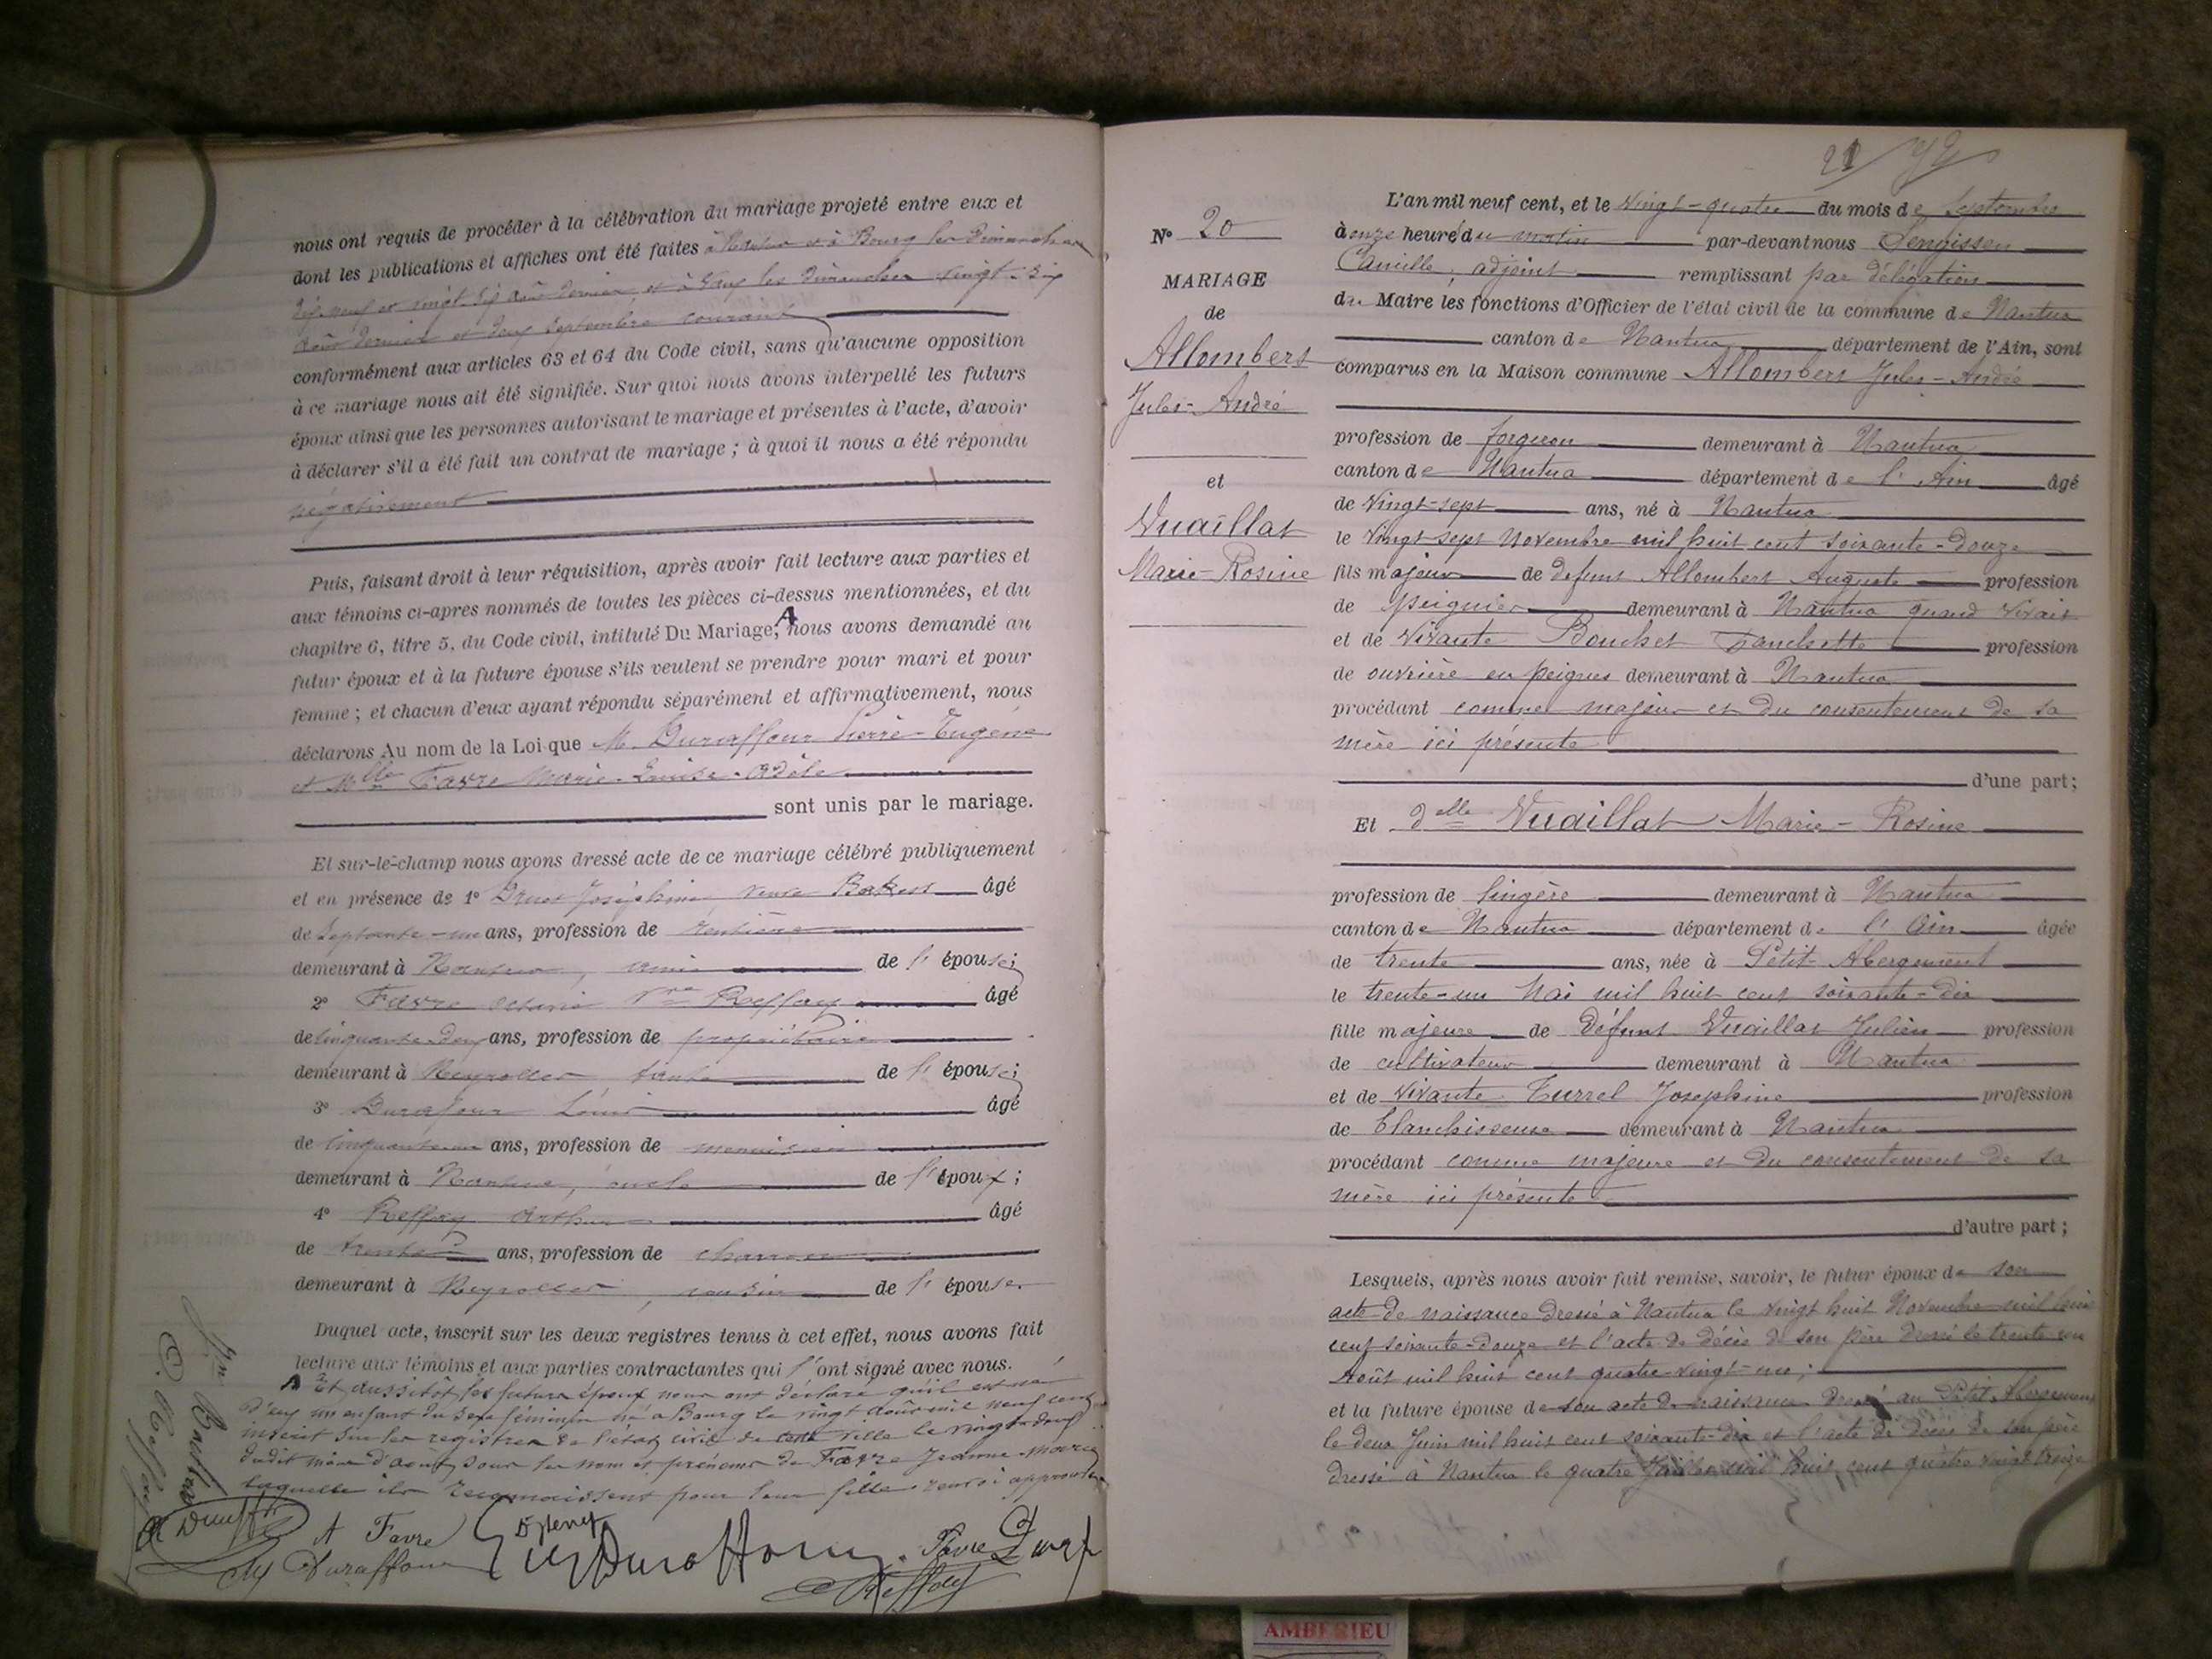 nous ont requis de procéder à la célébration du mariage projeté entre eux et
dont les publications et affiches ont été faites à Nantua et à Bourg les Dimanches
dix-neuf et vingt-six août dernier et à les dimanches vingt-six
août dernier et deux Septembre courant
conformément aux articles 63 et 64 du Code civil, sans qu'aucune opposition
à ce mariage nous ait été signifiée. Sur quoi nous avons interpellé les futurs
époux ainsi que les personnes autorisant le mariage et présentes à l'acte, d'avoir
à déclarer s'il a été fait un contrat de mariage ; à quoi il nous a été répondu
négativement
Puis, faisant droit à leur réquisition, après avoir fait lecture aux parties et
aux témoins ci-apres nommés de toutes les pièces ci-dessus mentionnées, et du
chapitre 6, titre 5, du Code civil, intitulé Du Mariage, A nous avons demandé au
futur époux et à la future épouse s'ils veulent se prendre pour mari et pour
femme ; et chacun d'eux ayant répondu séparément et affirmativement, nous
déclarons Au nom de la Loi que M. Duraffour Pierre-Eugène
et Mlle Favre Marie-Louise-Adèle
sont unis par le mariage.
Et sur-le-champ nous avons dressé acte de ce mariage célébré publiquement
et en présence de 1° Joséphine veuve âgé
de Septante-un ans, profession de rentière
demeurant à Nantua, amie de l'épouse;
2° Favre Vve Reffay âgé
de cinquante-deux ans, profession de propriétaire
demeurant à Neyrolles tante de l'épouse;
3° Durafour Louis âgé
de cinquante-un ans, profession de menuisier
demeurant à Nantua, oncle de l'époux ;
4° Reffay Arthur âgé
de trente ans, profession de charron
demeurant à Neyrolles, cousin de l'épouse.
Duquel acte, inscrit sur les deux registres tenus à cet effet, nous avons fait
lecture aux témoins et aux parties contractantes qui l'ont signé avec nous.
A Et aussitôt les futurs époux nous ont déclaré qu'il est né
d'eux un enfant du sexe féminin né à Bourg le vingt août mil neuf cent
inscrit sur les registres de l'état civil de cette ville le vingt-deux
dudit mois d'août sous les nom et prénoms de Favre Jeanne-Marie
laquelle ils reconnaissent pour leur fille. renvoi approuvé
A Favre
Duraffour
Duraffour
Favre
Reffay
21
N° 20
MARIAGE
de
Allombert
Jules-André
et
Vuaillat
Marie-Rosine
L'an mil neuf cent, et le vingt-quatre du mois de Septembre
à onze heure du matin par-devant nous Sengissen
Camille, adjoint remplissant par délégation
du Maire les fonctions d'Officier de l'état civil de la commune de Nantua
canton de Nantua département de l'Ain, sont
comparus en la Maison commune Allombert Jules-André
profession de forgeron demeurant à Nantua
canton de Nantua département de l'Ain âgé
de vingt-sept ans, né à Nantua
le vingt sept Novembre mil huit cent soixante-douze
fils majeur de defunt Allombert Auguste profession
de peignier demeurant à Nantua quand vivait
et de vivante Bouchet Franchette profession
de ouvrière en peignes demeurant à Nantua
procédant comme majeur et du consentement de sa
mère ici présente
d'une part;
Et delle Vuaillat Marie-Rosine
profession de lingère demeurant à Nantua
canton de Nantua département de l'Ain âgée
de trente ans, née à Petit-Abergement
le trente-un Mai mil huit cent soixante-dix
fille majeure de défunt Vuaillat Julien profession
de cultivateur demeurant à Nantua
et de vivante Turrel Josephine profession
de blanchisseuse demeurant à Nantua
procédant comme majeure et du consentement de sa
mère ici présente
d'autre part ;
Lesquels, après nous avoir fait remise, savoir, le futur époux de son
acte de naissance dressé à Nantua le vingt huit Novembre mil huit
cent soixante-douze et l'acte de décès de son père dressé le trente un
Août mil huit cent quatre-vingt-un ;
et la future épouse de son acte de naissance dressé au Petit Abergement
le deux Juin mil huit cent soixante-dix et l'acte de décès de son père
dressé à Nantua le quatre Juillet mil huit cent quatre vingt treize
AMBERIEU